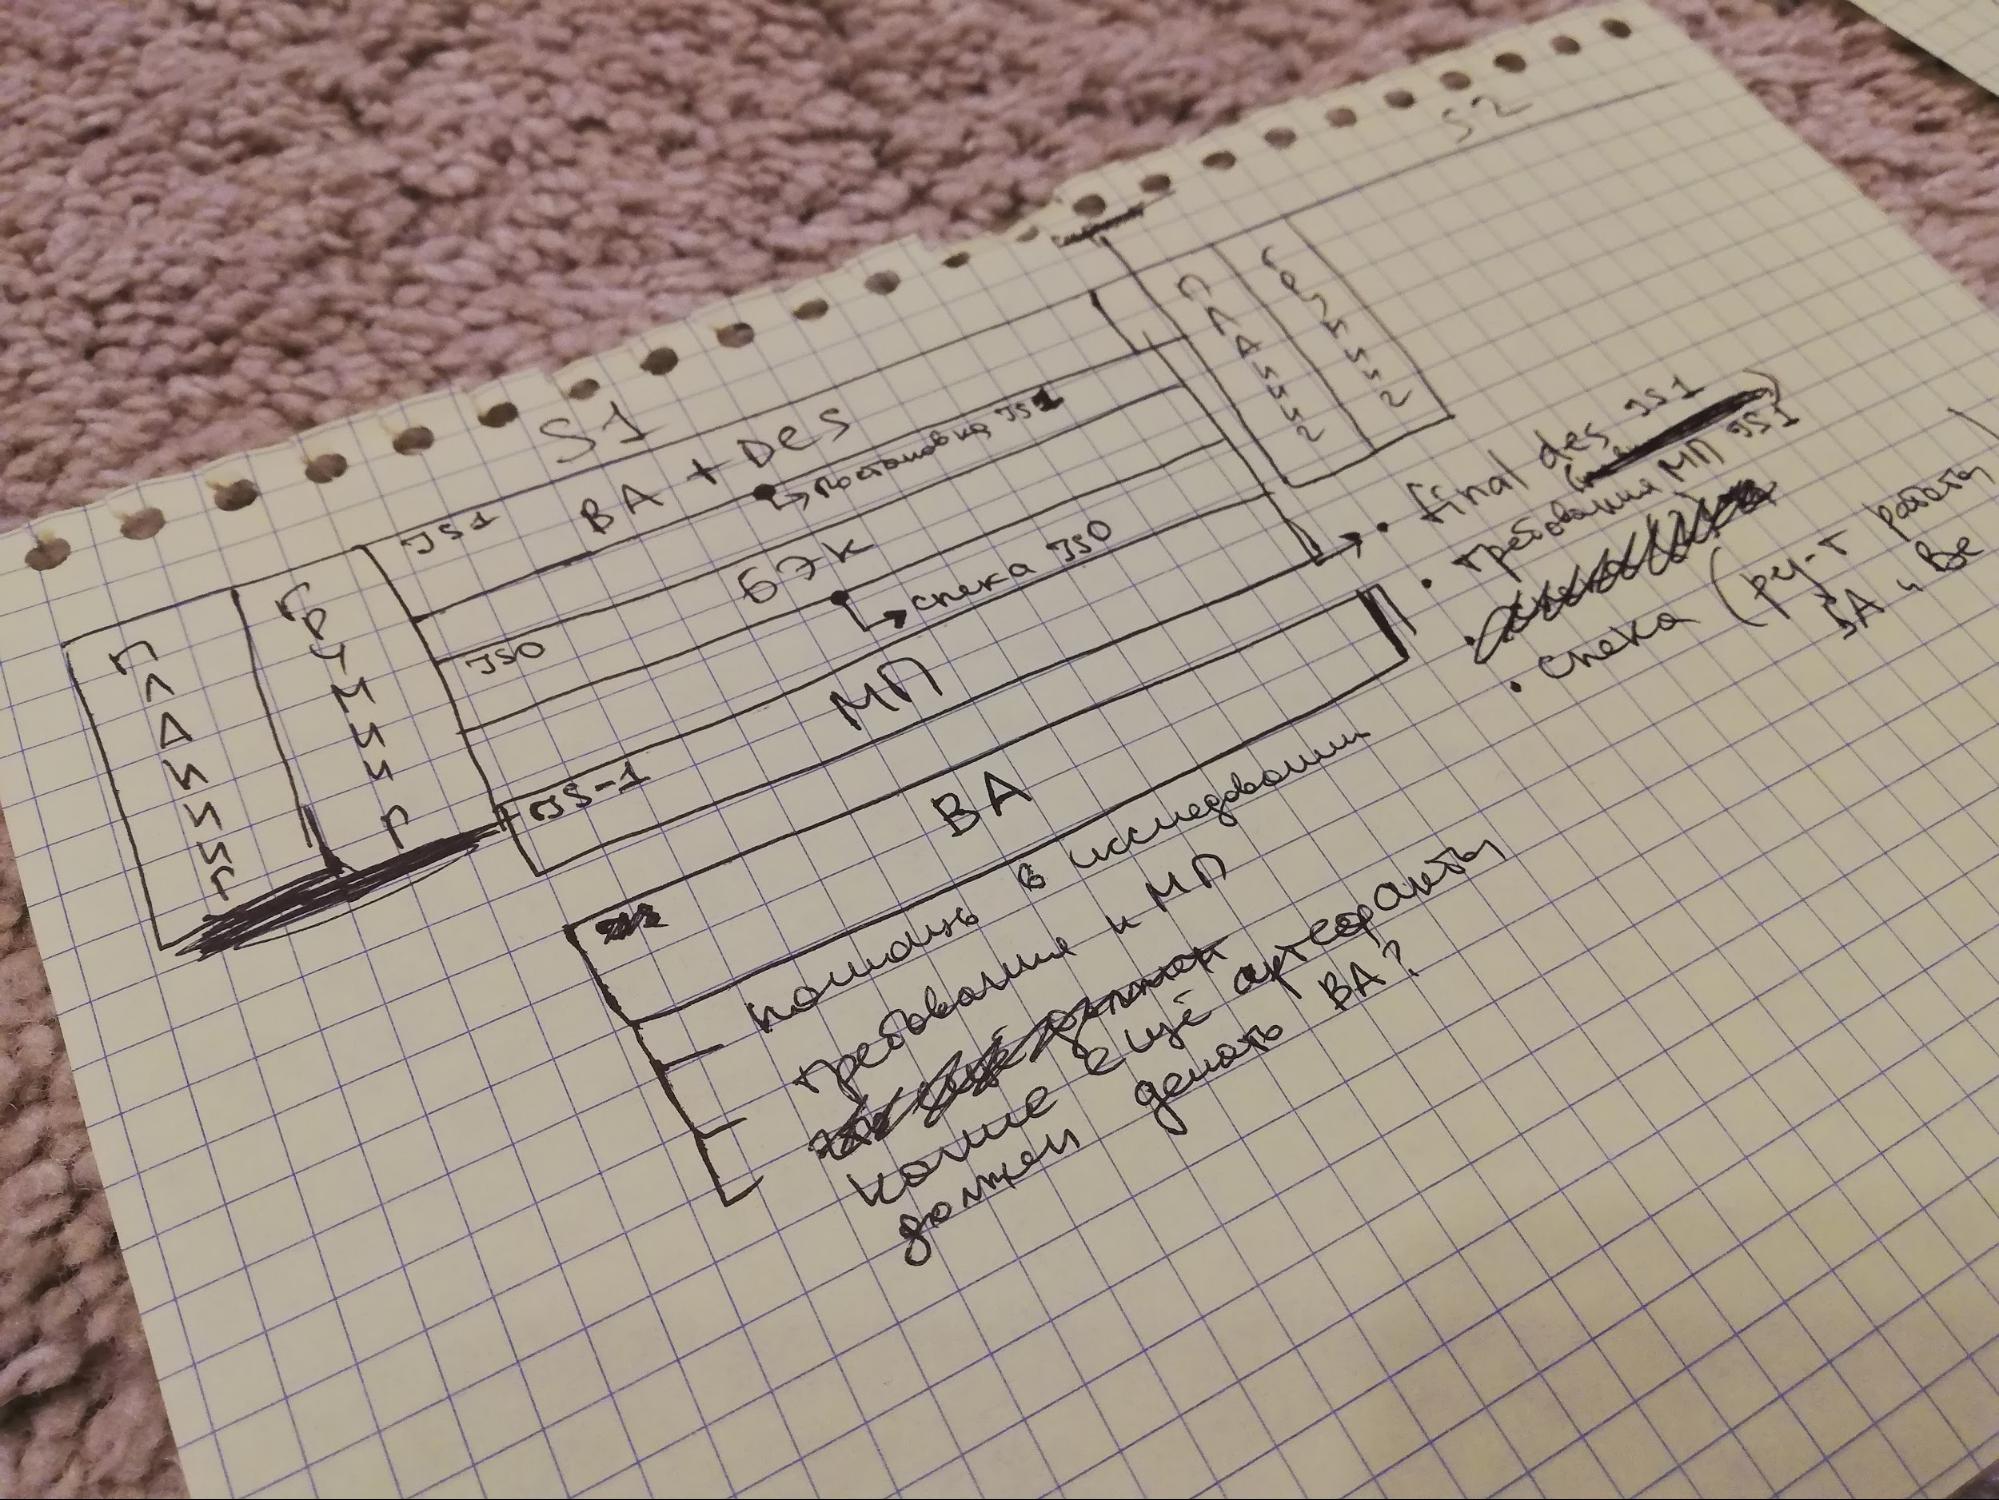 S1
S2
ПЛАНИНГ
ГРУМИНГ
JS1
BA + DES
постановка JS1
БЭК
JS0
спека JS0
МП
JS-1
BA
помощь в исследовании
требования к МП
какие ещё артефакты
должен делать BA?
• final des JS1
• требования МП JS1
• спека (рез-т работы
SA и Be